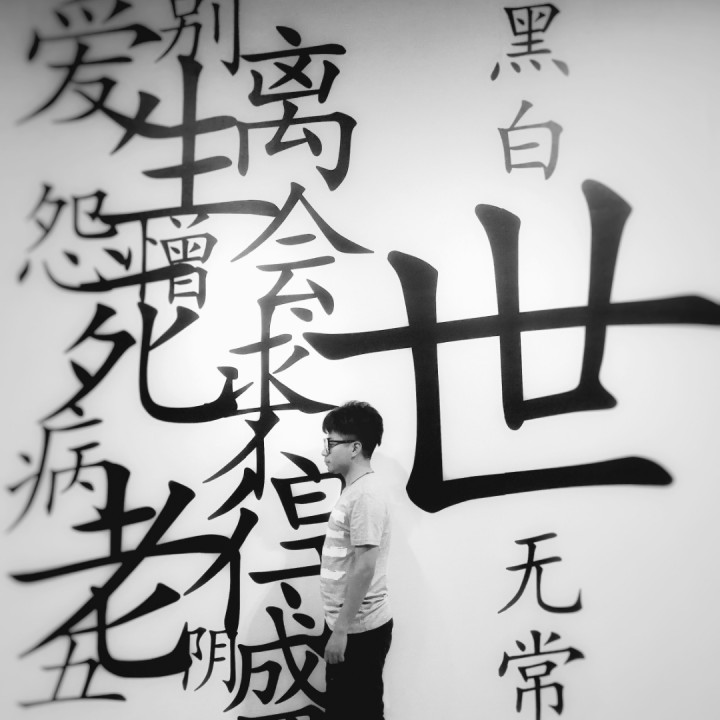 爱别离
生
怨憎会
死
求不得
病
老
五阴盛
黑白
世
无常